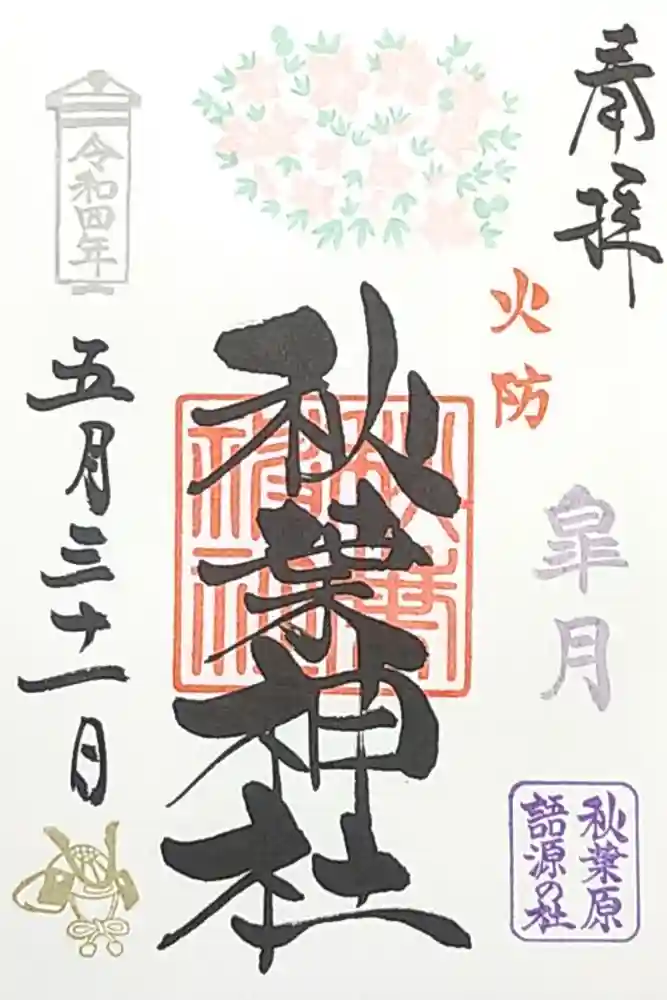 奉拝
火防
皐月
秋葉原
語源の社
秋葉神社
秋葉
神社
令和四年
五月三十一日